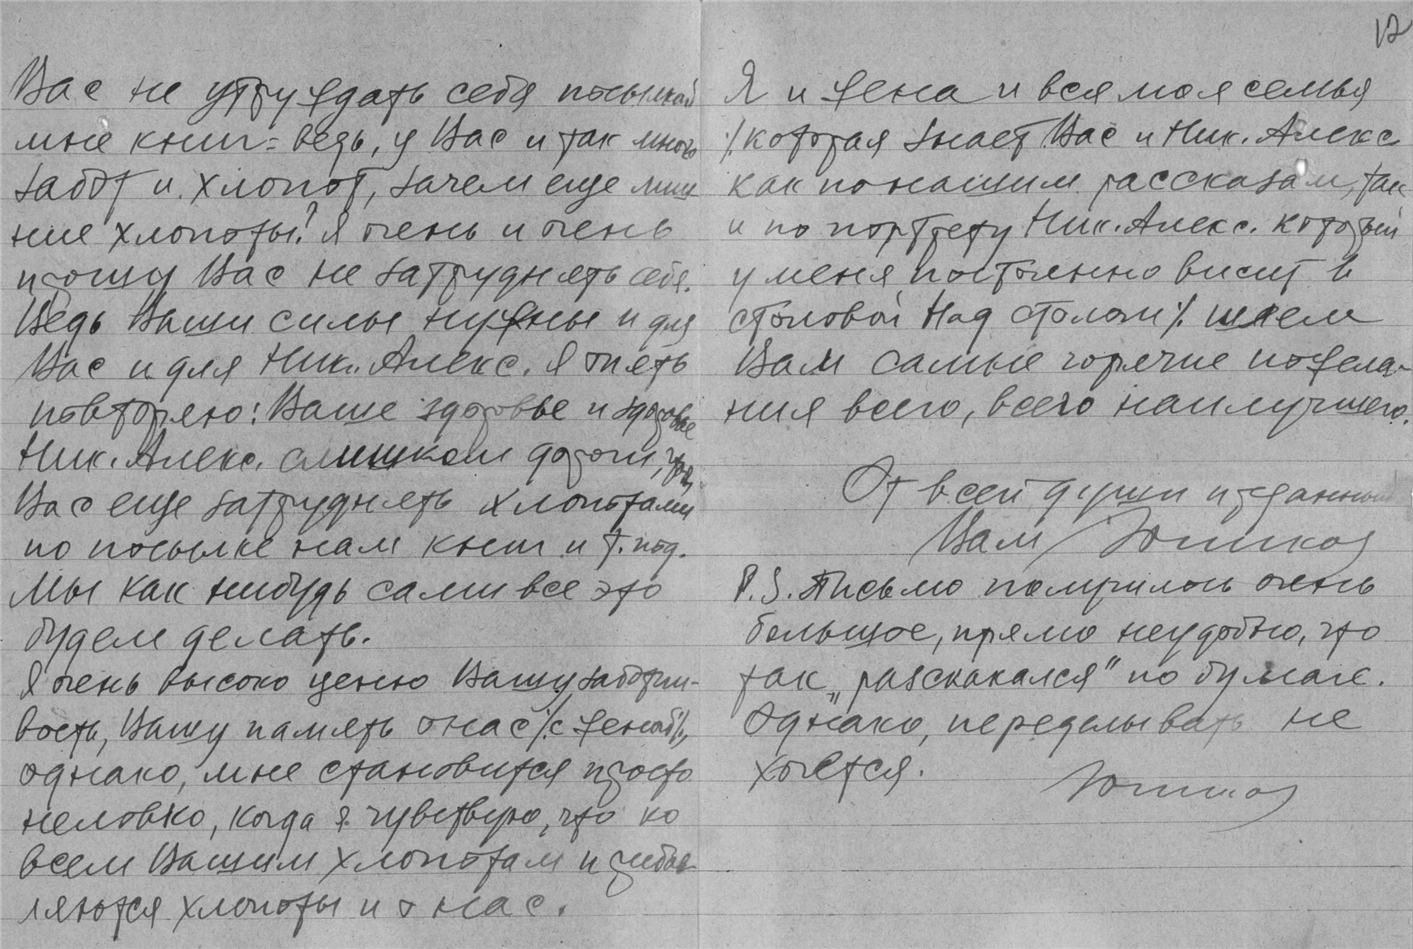 Вас не утруждать себя посылкой
мне книг = ведь, у Вас и так много
забот и хлопот, зачем еще лиш
ние хлопоты? Я очень и очень
прошу Вас не затруднять себя.
Ведь Ваши силы нужны и для
Вас и для Ник. Алекс. Я опять
повторяю: Ваше здоровье и здоровье
Ник. Алекс. слишком дороги, чтоб
Вас еще затруднять хлопотами
по посылке нам книг и т. под.
Мы как нибудь сами все это
будем делать.
Я очень высоко ценю Вашу заботли-
вость, Вашу память о нас /с женой/,
однако, мне становится просто
неловко, когда я чувствую, что ко
всем Вашим хлопотам и прибав-
ляются хлопоты и о нас.
12
Я и жена и вся моя семья
/которая знает Вас и Ник. Алекс
как по нашим рассказам, так
и по портрету Ник. Алекс. который
у меня постоянно висит в
столовой над столом/ шлем
Вам самые горячие пожела-
ния всего, всего наилучшего.
От всей души преданный
Вам
P.S. Письмо получилось очень
большое, прямо неудобно, что
так „разскакался" по бумаге.
Однако, переделывать не
хочется.